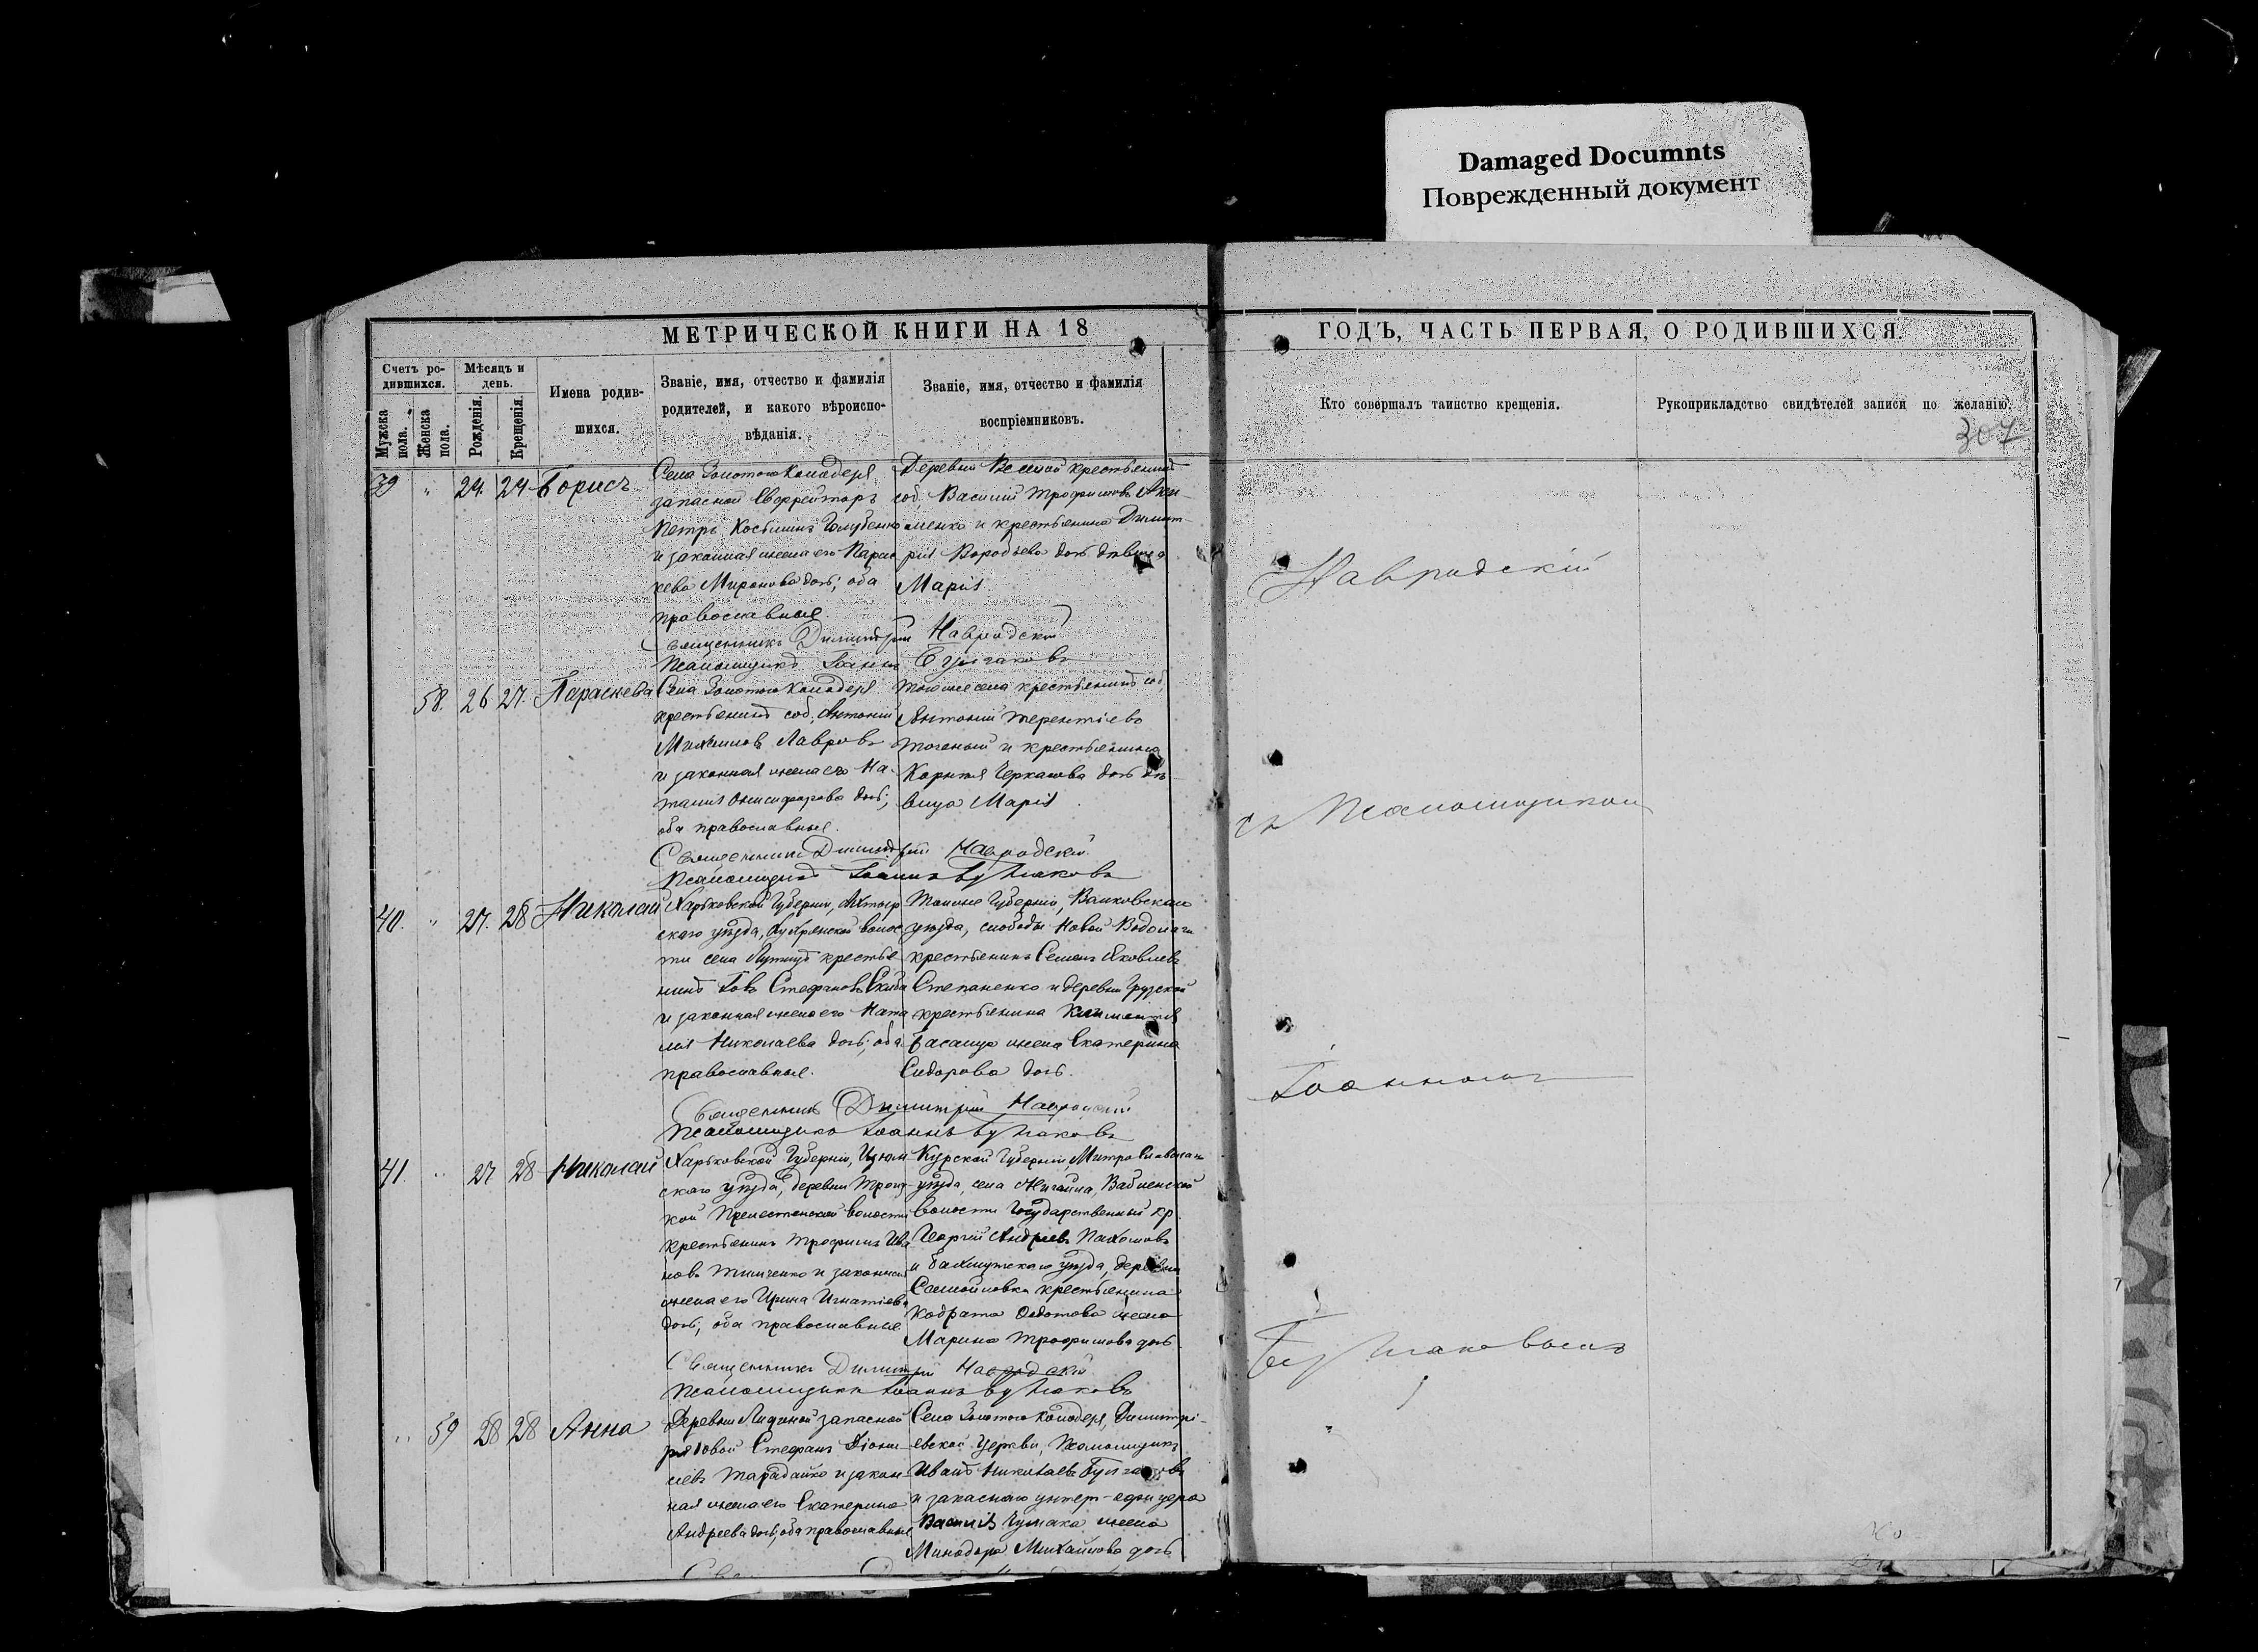 Damaged Documnts
Поврежденный документ
МЕТРИЧЕСКОЙ КНИГИ НА 18
ГОДЪ, ЧАСТЬ ПЕРВАЯ, О РОДИВШИХСЯ.
Счетъ ро-
дившихся.
Мужска
пола.
Женска
пола.
Мѣсяцъ и
день.
Рожденія.
Крещенія.
Имена родив-
шихся.
Званіе, имя, отчество и фамилія
родителей, и какого вѣроиспо-
вѣданія.
Званіе, имя, отчество и фамилія
воспріемниковъ.
Кто совершалъ таинство крещенія.
Рукоприкладство свидѣтелей записи по желанію.
307
39 " 24. 24 Борисъ
Села Золотого Колодезя
запасной Ефрейторъ
Петръ
и законная жена его Парас
кева Миронова дочь; оба
православные.
Деревни крестьянинъ
соб. Василій Трофимовъ
менко и крестьянина Димит
рія Воробьева дочь дѣвица
Марія.
Священникъ Димитрій Навродскій
Псаломщикъ Іоаннъ Булгаковъ
58. 26 27. Параскева
Села Золотого Колодезя
крестьянинъ соб. Антоній
Лавровъ
и законная жена его На-
талія Онисифорова дочь;
оба православные.
Того же села крестьянинъ соб.
Антоній Терентіевъ
и крестьянина
Корнилія Черкасова дочь дѣ-
вица Марія.
Священникъ Димитрій Навродскій
Псаломщикъ Іоаннъ Булгаковъ
40. " 27. 28 Николай
Харьковской Губерніи, Ахтыр
скаго уѣзда, волос
ти села крестья
нинъ Іовъ Стефановъ
и законная жена его Ната
лія Николаева дочь; оба
православные.
Тойже Губерніи, Валковскаго
уѣзда, слободы Новой Водолаги
крестьянинъ Семенъ Яковлевъ
Степаненко и деревни Грузской
крестьянина Климентія
жена Екатерина
Сидорова дочь.
Священникъ Димитрій Навродскій
Псаломщикъ Іоаннъ Булгаковъ
41. " 27 28 Николай
Харьковской Губерніи, Изюм
скаго уѣзда, деревни Троиц
кой волости
крестьянинъ Трофимъ Ива
новъ Тимченко и законная
жена его Ирина Игнатіева
дочь; оба православные
Курской Губерніи,
уѣзда, села
волости Государственный кр.
Георгій Андреевъ Пахомовъ
и Бахмутскаго уѣзда, деревни
Самойловка крестьянина
Кодрата Федотова жена
Марина Трофимова дочь
Священникъ Димитрій Навродскій
Псаломщикъ Іоаннъ Булгаковъ
" 59 28 28 Анна
Деревни запасной
рядовой Стефанъ Діони-
сіевъ Тарадайко и закон
ная жена его Екатерина
Андреева дочь; оба православные
Села Золотого Колодезя, Димитрі-
евской Церкви, Псаломщикъ
Иванъ Николаевъ Булгаковъ
и запасного унтер-офицера
Василія Чумака жена
Минодора Михайлова дочь
Навродскій
съ Псаломщикомъ
Іоанномъ
Булгаковымъ